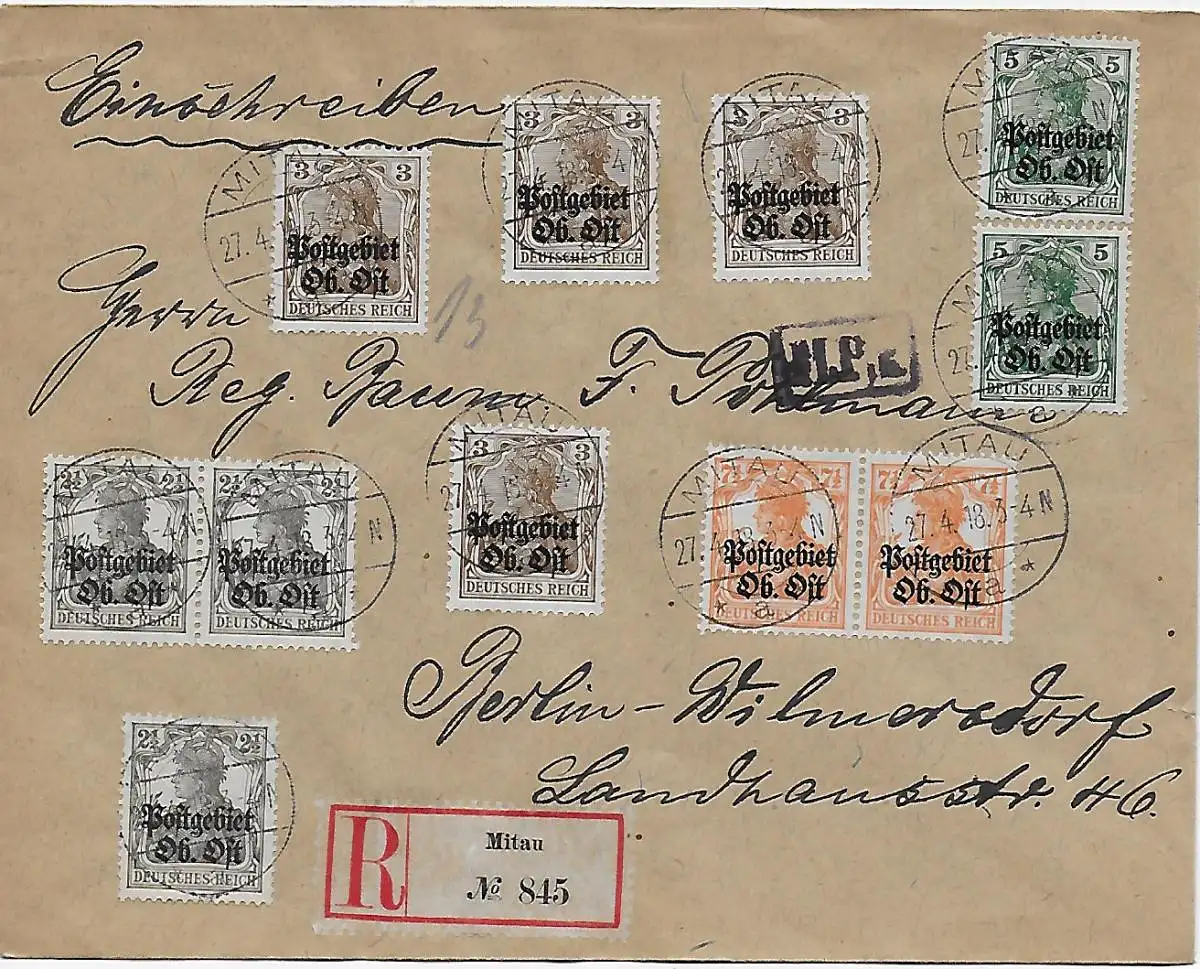 Einschreiben
3 3
Postgebiet
Ob. Ost
DEUTSCHES REICH
MITAU
27.4.18.3-4N
* a *
3 3
Postgebiet
Ob. Ost
DEUTSCHES REICH
MITAU
3 3
Postgebiet
Ob. Ost
DEUTSCHES REICH
MITAU
5 5
Postgebiet
Ob. Ost
DEUTSCHES REICH
MITAU
5 5
Postgebiet
Ob. Ost
DEUTSCHES REICH
13
Herrn
Reg. F.
2½ 2½
Postgebiet
Ob. Ost
DEUTSCHES REICH
2½ 2½
Postgebiet
Ob. Ost
DEUTSCHES REICH
3 3
Postgebiet
Ob. Ost
DEUTSCHES REICH
MITAU
7½ 7½
Postgebiet
Ob. Ost
DEUTSCHES REICH
MITAU
27.4.18.3-4N
* a *
7½ 7½
Postgebiet
Ob. Ost
DEUTSCHES REICH
MITAU
27.4.18.3-4N
* a *
Berlin-Wilmersdorf
Landhausstr. 46.
2½ 2½
Postgebiet
Ob. Ost
DEUTSCHES REICH
R
Mitau
№ 845